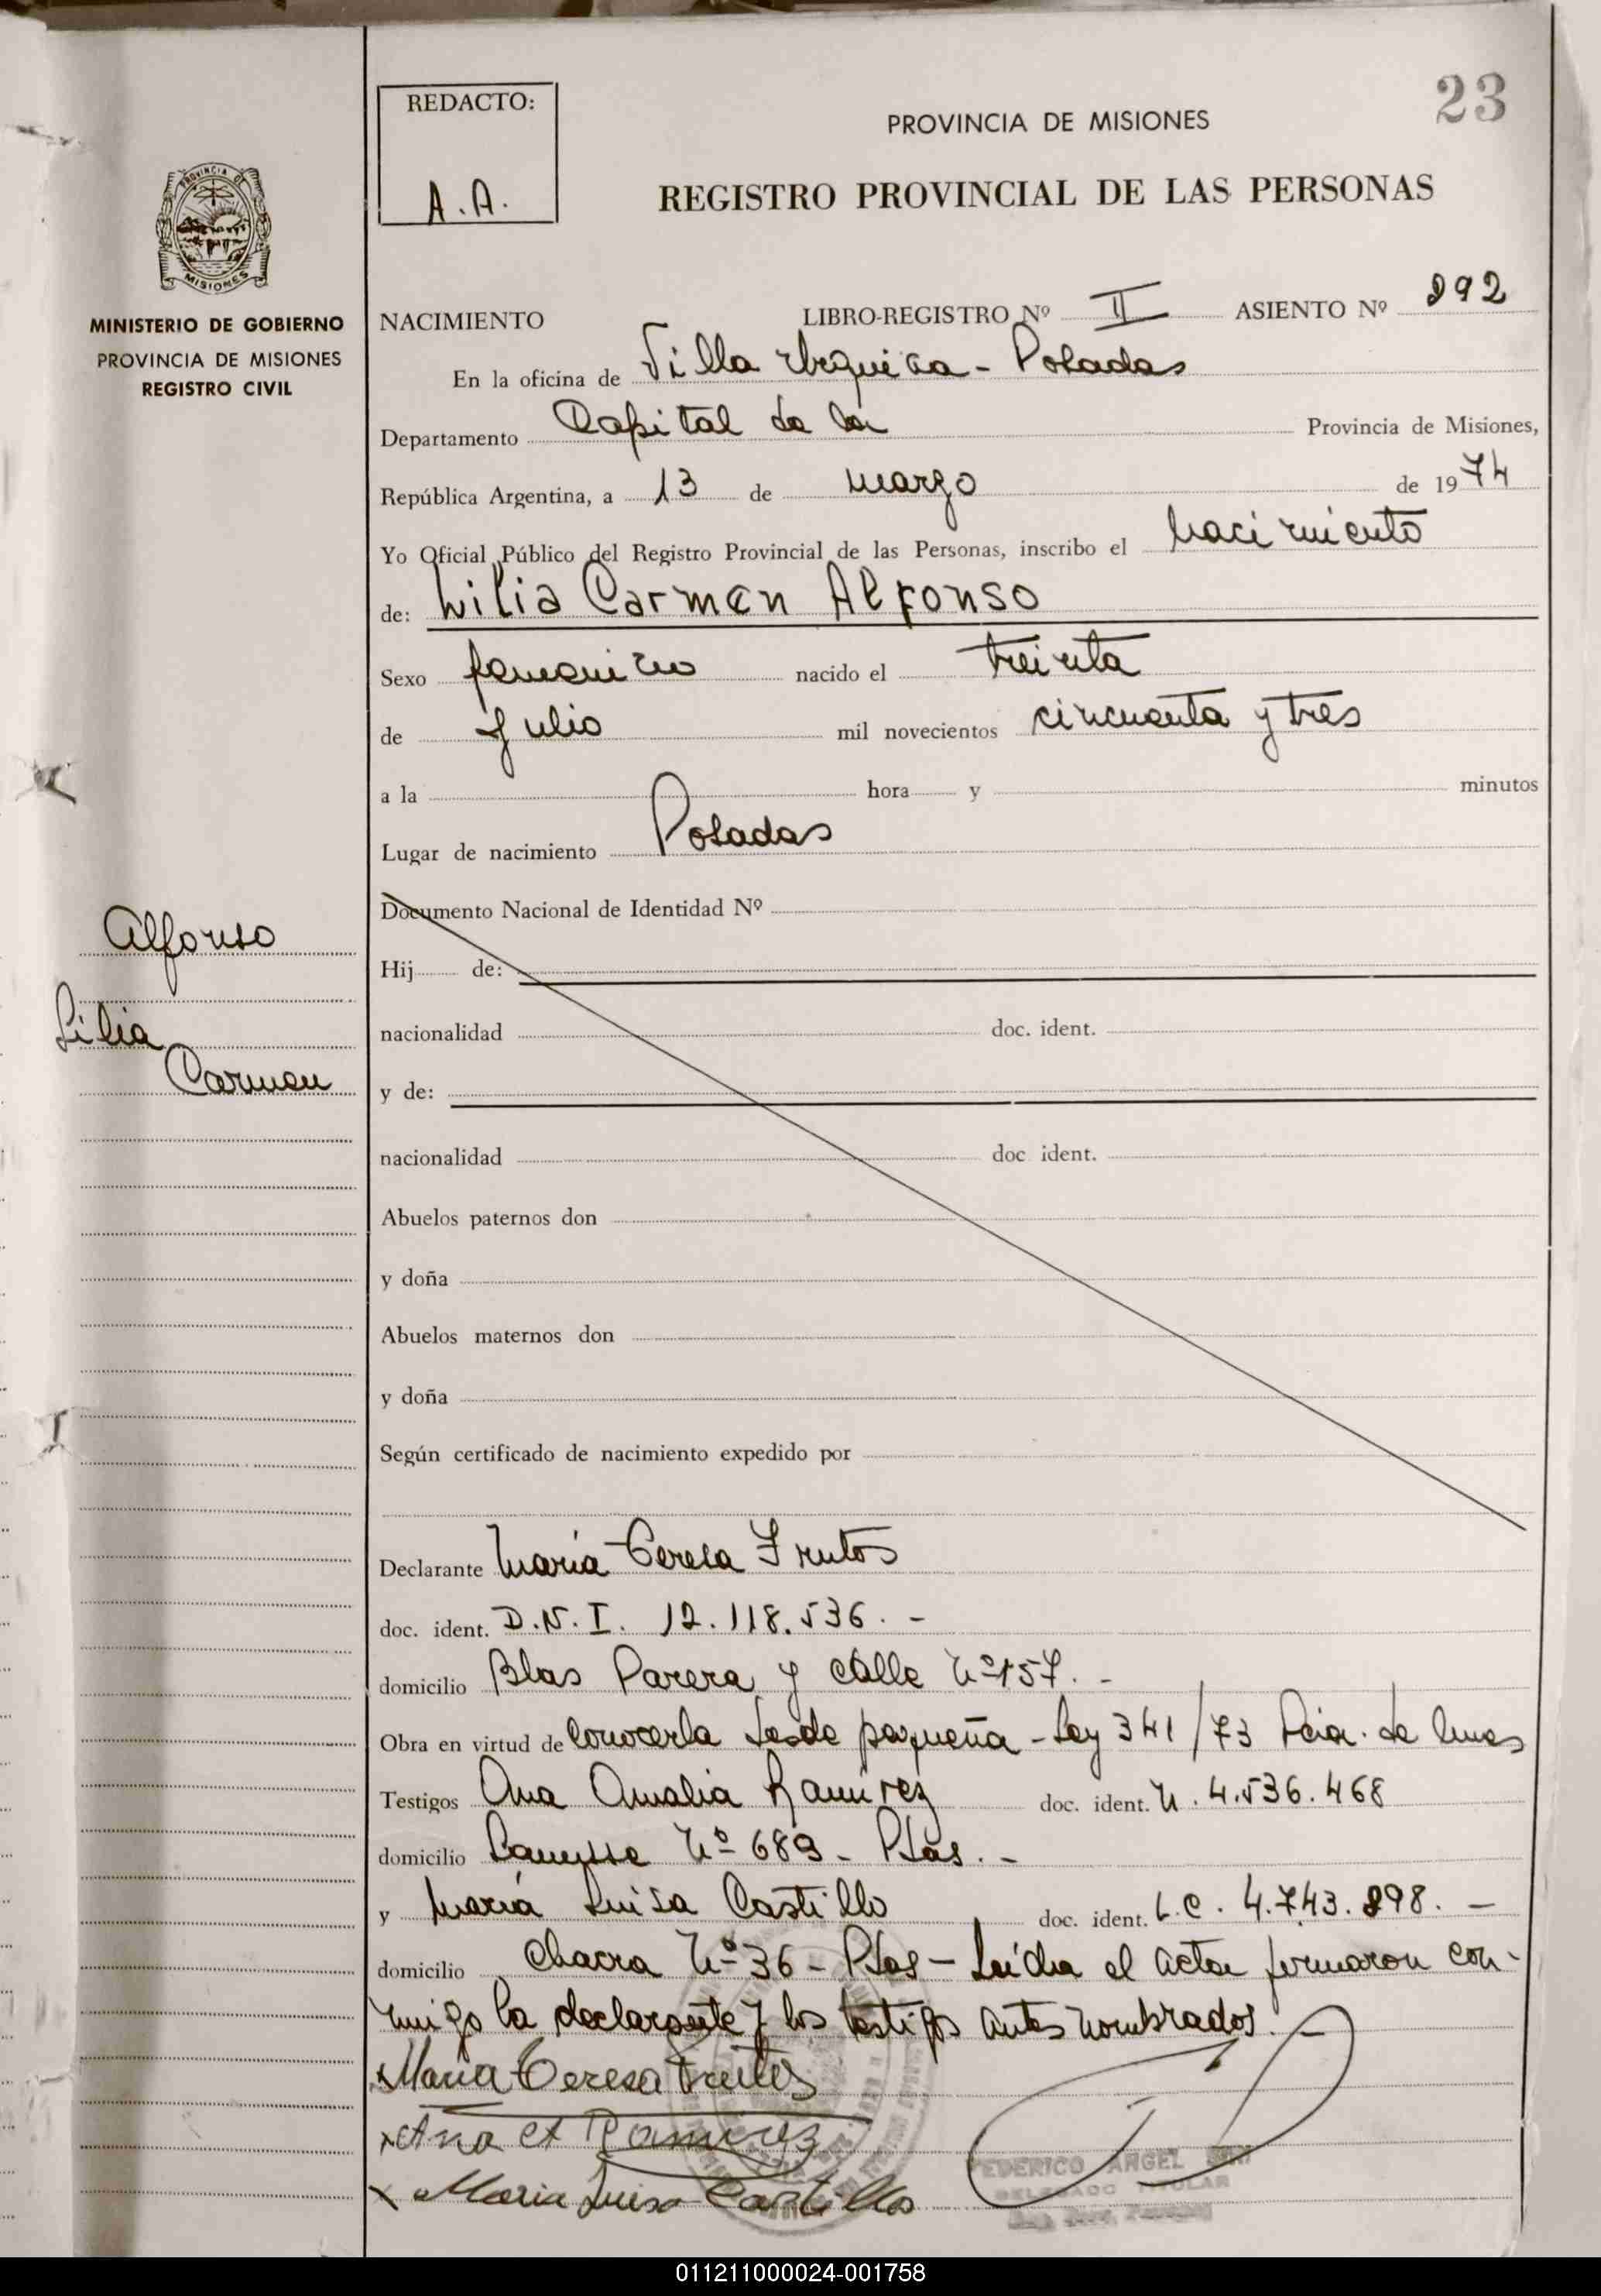 23
REDACTO:
A.A.
PROVINCIA DE MISIONES
REGISTRO PROVINCIAL DE LAS PERSONAS
PROVINCIA DE
MISIONES
MINISTERIO DE GOBIERNO
PROVINCIA DE MISIONES
REGISTRO CIVIL
NACIMIENTO LIBRO-REGISTRO Nº II ASIENTO Nº 892
En la oficina de Villa Urquiza - Posadas
Departamento Capital de la Provincia de Misiones,
República Argentina, a 13 de marzo de 1974
Yo Oficial Público del Registro Provincial de las Personas, inscribo el nacimiento
de: Lilia Carmen Alfonso
Sexo femenino nacido el treinta
de Julio mil novecientos cincuenta y tres
a la hora y minutos
Lugar de nacimiento Posadas
Alfonso
Lilia
Carmen
Documento Nacional de Identidad Nº
Hij de:
nacionalidad doc. ident.
y de:
nacionalidad doc ident.
Abuelos paternos don
y doña
Abuelos maternos don
y doña
Según certificado de nacimiento expedido por
Declarante María Teresa Frutos
doc. ident. D.N.I. 12.118.536. -
domicilio Blas Parera y calle Nº 157. -
Obra en virtud de conocerla desde pequeña - Ley 341/73 Pcia. de
Testigos Ana Amalia Ramírez doc. ident. 4.536.468
domicilio Nº 689 - Pdas. -
y María Luisa Castillo doc. ident. L.C. 4.743.898. -
domicilio Chacra Nº 36 - Pdas - Leída el acta firmaron con-
migo la declarante y los testigos antes nombrados. -
Maria Teresa Frutos
x Ana A Ramirez
x Maria Luisa Castillo
FEDERICO ANGEL
DELEGADO TITULAR
011211000024-001758